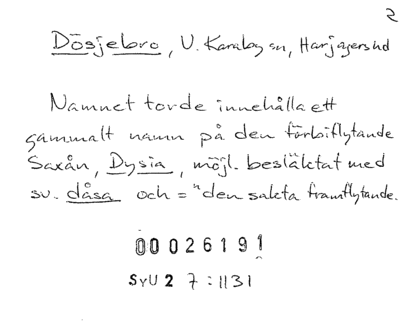 2
Dösjebro, V. Karaby sn, Harjagers hd
Namnet torde innehålla ett
gammalt namn på den förbiflytande
Saxån, Dysia, möjl. besläktat med
sv. dåsa och = "den sakta framflytande.
00026191
SYU 2 7:1131